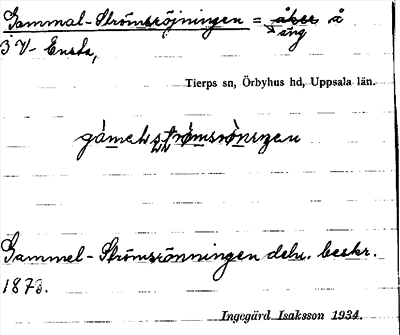 Gammal-Strömsröjningen = åker å
äng
3 V- Ensta,
Tierps sn, Örbyhus hd, Uppsala län.
gàmalströmsrònıŋen
Gammel-Strömsrönningen delu. beskr.
1873.
Ingegärd Isaksson 1934.